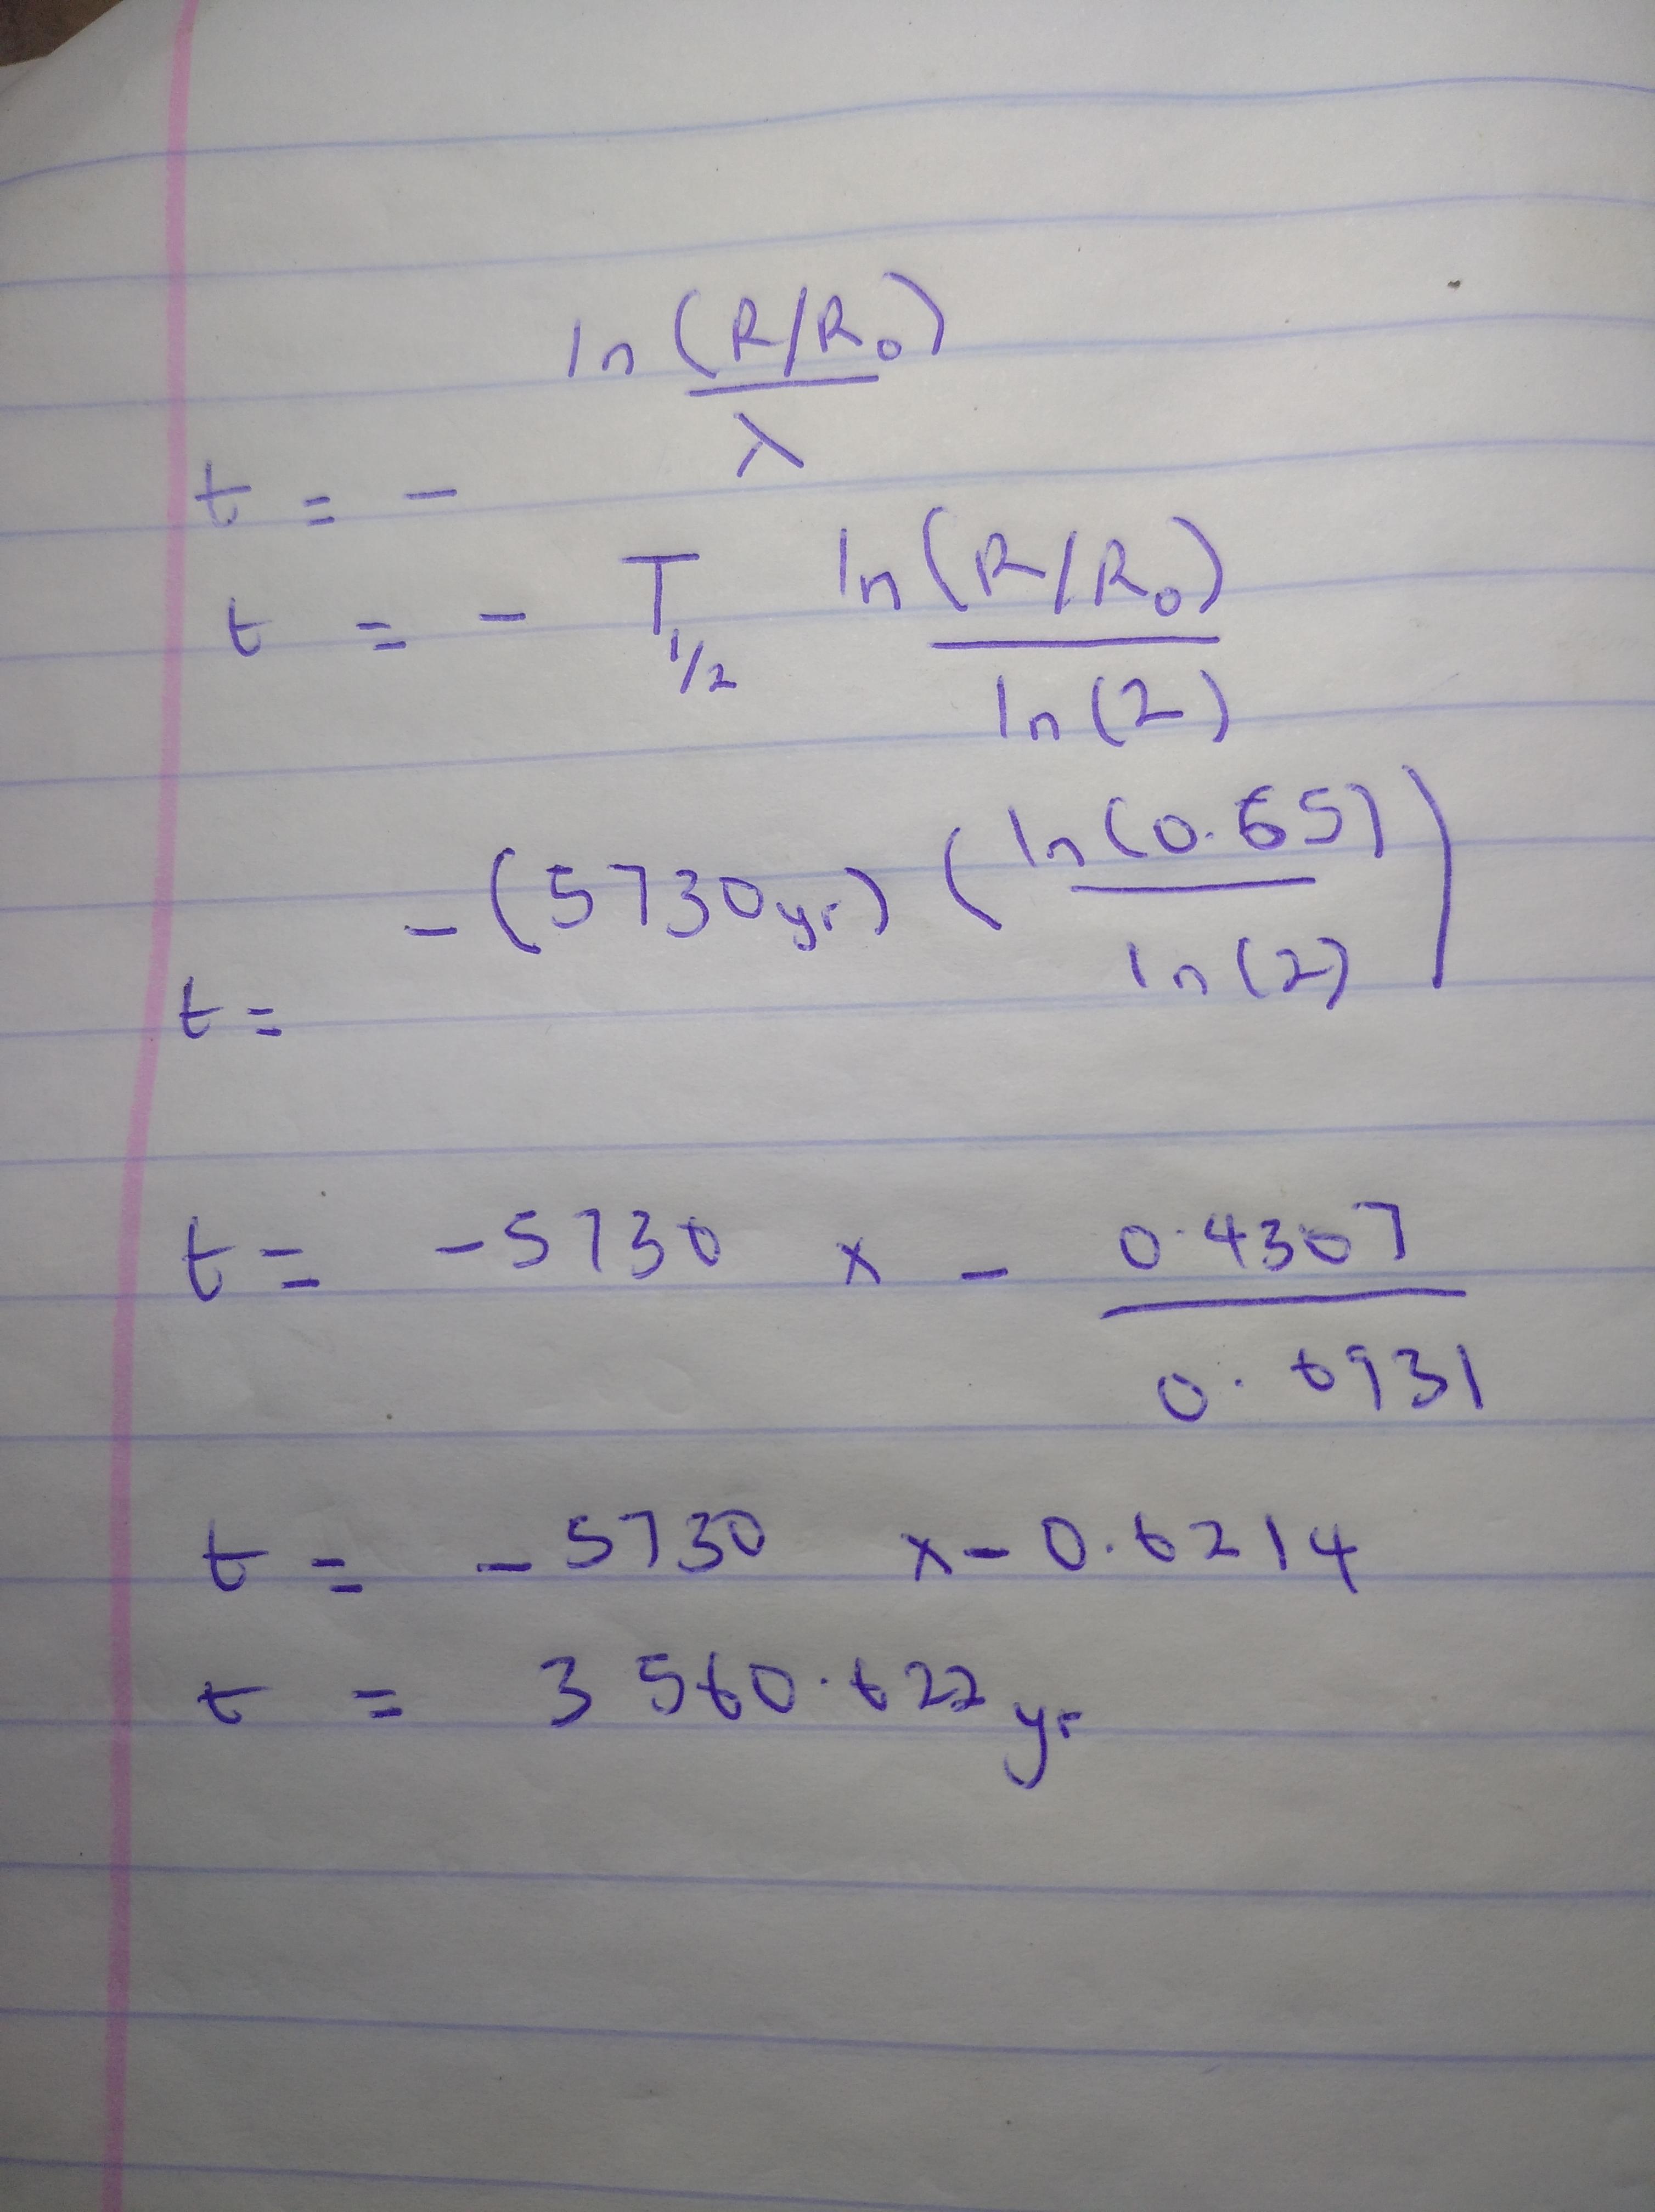 t = - ln (R/R₀) / λ
t = - T₁/₂ ln (R/R₀) / ln (2)
t = - (5730yr) ( ln (0.65) / ln (2) )
t = -5730 x - 0.4307 / 0.6931
t = -5730 x - 0.6214
t = 3560.622 yr